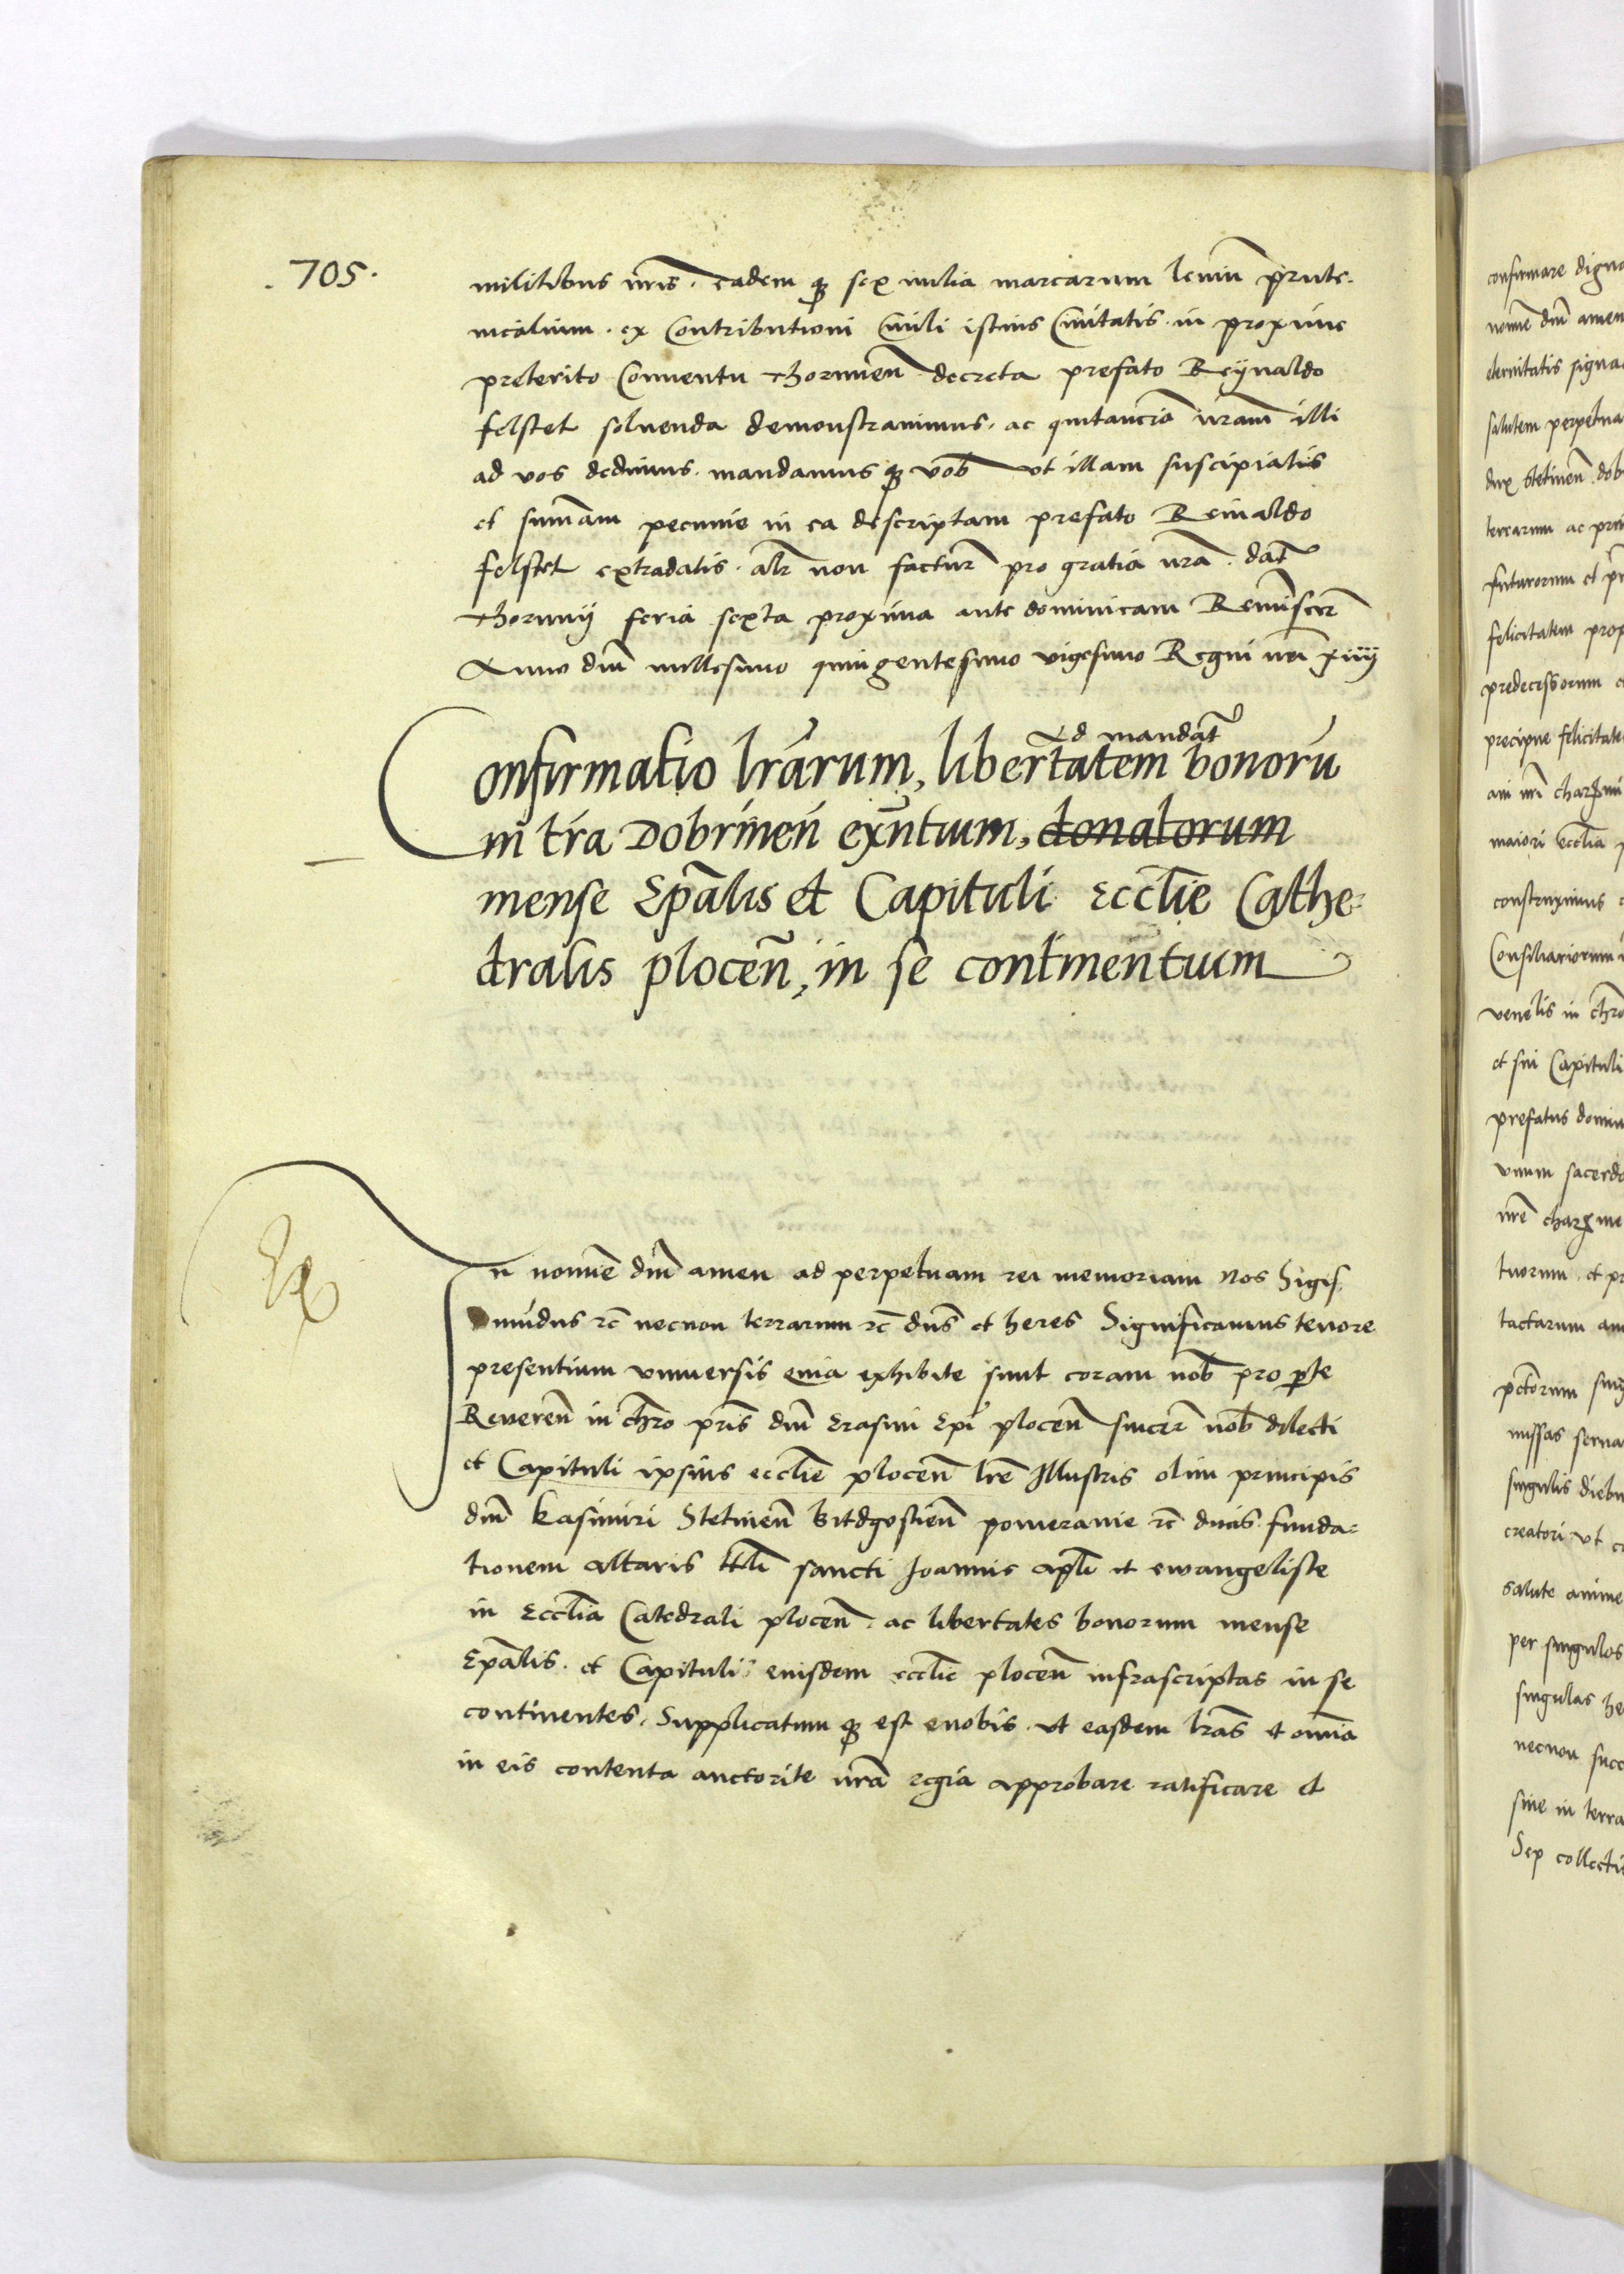 .705.
militibus nr̄is. eadem q̨ sex milia marcarum leuiū prute-
nicalium. ex Contributioni Ciuili istius Ciuitatis. in proxime
preterito Conuentu Thorunień decreta prefato Reÿnaldo
felstet soluenda demonstrauimus. ac quitanciā nr̄am illi
ad vos dedimus. mandamus q̨ vob̄ vt illam suscipiatis
et sum̄am pecunie in ea descriptam prefato Reinaldo
felstet extradatis. alr̄ non facturi pro gratia nr̄a. dat̄
Thorunij feria sexta proxima ante dominicam Reminiscer̄
Anno dn̄i millesimo quingentesimo vigesimo Regni nr̄i xiiij
Ad mandat̄
Confirmatio lr̄arum, libertatem bonorū
in tr̄a Dobrinen̄ exn̄tium, donatorum
mense Epālis et Capituli Eccl̄ie Cathe-
dralis plocen̄, in se continentium
In nomīe dn̄i amen ad perpetuam rei memoriam Nos Sigis
mūdus rc̄ necnon terrarum rc̄ dn̄s et heres Significamus tenore
presentium vniuersis quia exhibite sunt coram nob̄ pro pte
Reueren̄ in chr̄o pr̄is dn̄i Erasmi Epī plocen̄ sincer̄ nob̄ dilecti
et Capituli ipsius eccl̄ie plocen̄ lr̄e Illustris olim principis
dn̄i Kasimiri Stetinen̄ bitdgostien̄ pomeranie rc̄ ducis. funda-
tionem altaris ttl̄i sancti Joannis apl̄i et ewangeliste
in Eccl̄ia Catedrali plocen̄. ac libertates bonorum mense
Epālis. et Capituli eiusdem eccl̄ie plocen̄ infrascriptas in se
continentes. Supplicatum q̨ est enobis. vt easdem lr̄as et om̄ia
in eis contenta auctorite nr̄a regia approbare ratificare et
confirmare digna
nomīe dn̄i amen
eternitatis signa
salutem perpetua
dux Stetinen̄ dob
terrarum ac pri
futurorum et pr
felicitatem prop
predecessorum
precipue felicitate
aui nr̄i charxmi
maiori eccl̄ia
construximus
Consiliariorum
venelis in chr̄o
et sui Capituli
prefatus domin
vnum sacerdo
nr̄e charxme
tuorum. et pr
tactarum am
pctorum sing
missas serua
singulis diebu
creatori vt
salute anime
per singulos
singulas he
necnon succ
siue in terra
Sep collecti